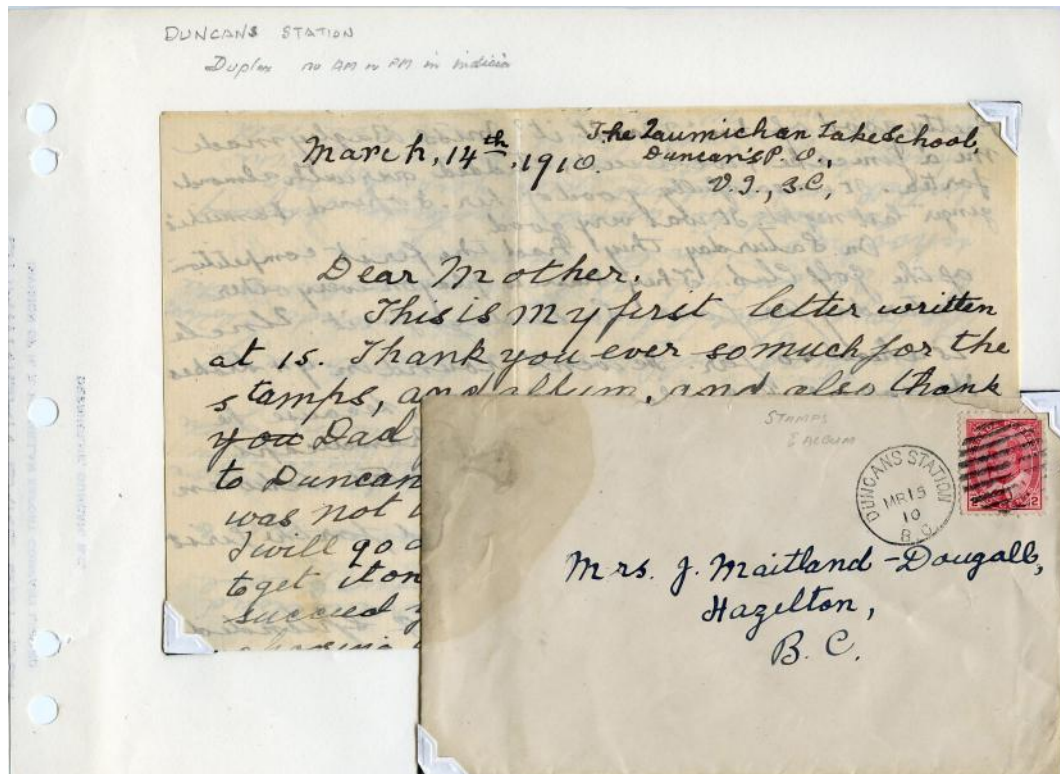 DUNCANS STATION
Duplex no AM or PM in indicia
March, 14th, 1910.
The Zaumichan Lake School,
Duncan's P.O.,
V.I., B.C,
Dear Mother.
This is my first letter written
at 15. Thank you ever so much for the
stamps, and album, and also thank
you Dad
to Duncan
was not
I will go
to get it on
succeed
STAMPS
& ALBUM
DUNCANS STATION
MR 15
10
B.C.
2 2
Mrs. J. Maitland-Dougall,
Hazelton,
B.C.